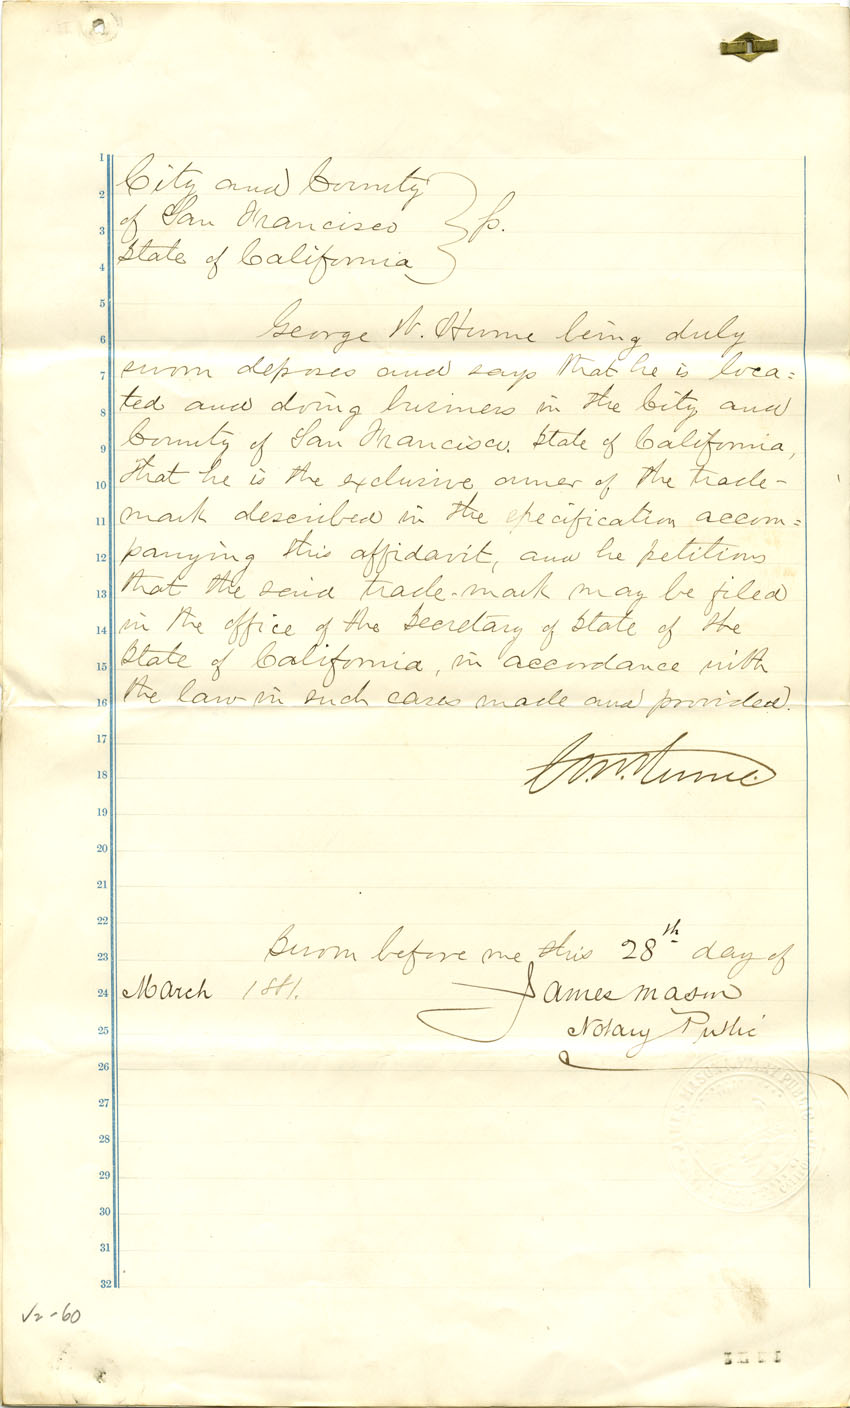 City and County
of San Francisco } ss.
State of California
George W. Hume being duly
sworn deposes and says that he is loca=
ted and doing business in the City and
County of San Francisco. State of California,
that he is the exclusive owner of the trade-
mark described in the specification accom=
panying this affidavit, and he petitions
that the said trade-mark may be filed
in the office of the Secretary of State of the
State of California, in accordance with
the law in such cases made and provided.
G. W. Hume
Sworn before me this 28th day of
March 1881.
James Mason
Notary Public
1
2
3
4
5
6
7
8
9
10
11
12
13
14
15
16
17
18
19
20
21
22
23
24
25
26
27
28
29
30
31
32